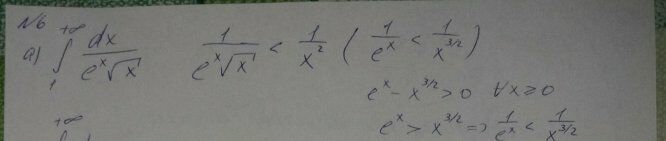 N6
a) ∫₁^{+∞} dx / (e^x √x)    1 / (e^x √x) < 1 / x^2 ( 1 / e^x < 1 / x^{3/2} )
e^x - x^{3/2} > 0 ∀x ≥ 0
e^x > x^{3/2} => 1 / e^x < 1 / x^{3/2}
+∞